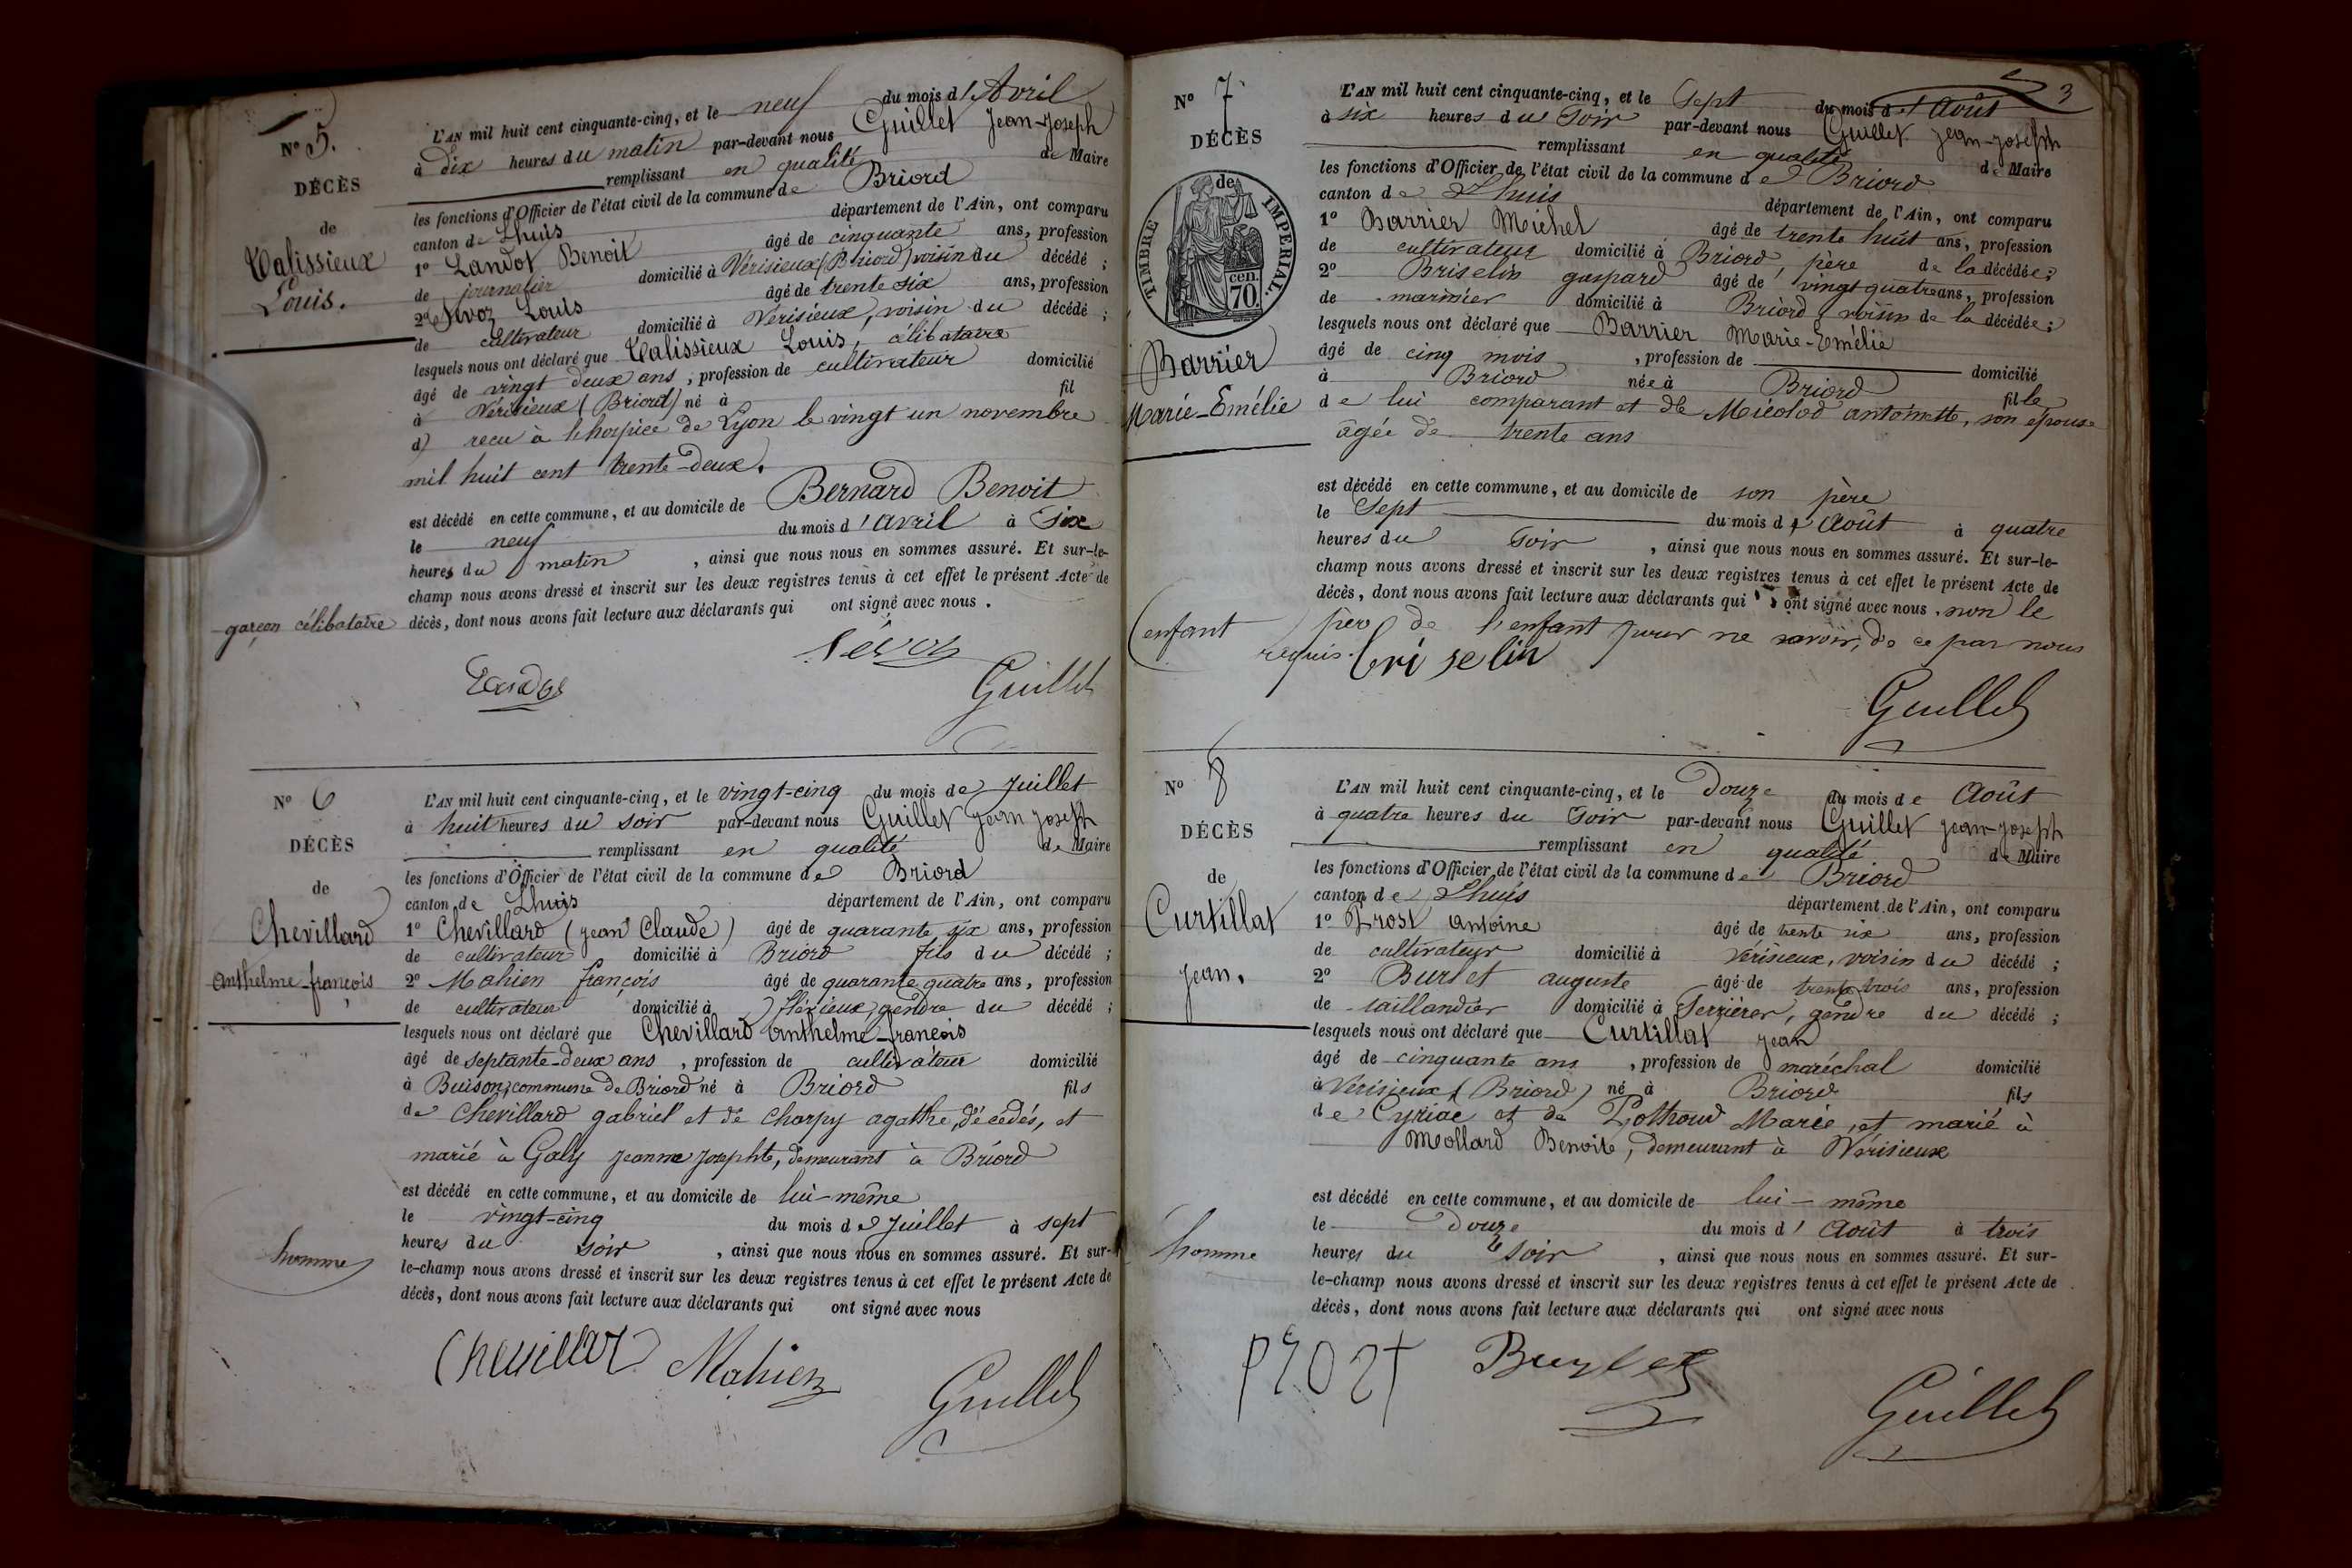 N° 5.
DÉCÈS
de
Valissieux
Louis.
L'AN mil huit cent cinquante-cinq, et le neuf du mois d'Avril
à dix heures du matin par-devant nous Guillet Jean-Joseph
remplissant en qualité de Maire
les fonctions d'Officier de l'état civil de la commune de Briord
canton de Lhuis département de l'Ain, ont comparu
1° Landot Benoit âgé de cinquante ans, profession
de journalier domicilié à Vérisieux (Briord) voisin du décédé ;
2° Louis âgé de trente six ans, profession
de cultivateur domicilié à Verisieux, voisin du décédé ;
lesquels nous ont déclaré que Valissieux Louis, célibataire
âgé de vingt deux ans, profession de cultivateur domicilié
à Vérisieux (Briord) né à fil
d) recu à l'hospice de Lyon le vingt un novembre
mil huit cent trente-deux.
est décédé en cette commune, et au domicile de Bernard Benoit
le neuf du mois d'avril à six
heures du matin, ainsi que nous nous en sommes assuré. Et sur-le-
champ nous avons dressé et inscrit sur les deux registres tenus à cet effet le présent Acte de
garçon célibataire décès, dont nous avons fait lecture aux déclarants qui ont signé avec nous.
Landot
Guillet
N° 6
DÉCÈS
de
Chevillard
anthelme-françois
L'AN mil huit cent cinquante-cinq, et le vingt-cinq du mois de Juillet
à huit heures du soir par-devant nous Guillet Jean Joseph
remplissant en qualité de Maire
les fonctions d'Officier de l'état civil de la commune de Briord
canton de Lhuis département de l'Ain, ont comparu
1° Chevillard (jean Claude) âgé de quarante six ans, profession
de cultivateur domicilié à Briord fils du décédé ;
2° Mahien françois âgé de quarante quatre ans, profession
de cultivateur domicilié à flérieux, gendre du décédé ;
lesquels nous ont déclaré que Chevillard Anthelme-francois
âgé de septante-deux ans, profession de cultivateur domicilié
à Buison, commune de Briord né à Briord fils
de Chevillard gabriel et de Charpy agathe, décédés, et
marié à Galy Jeanne Josephte, demeurant à Briord
est décédé en cette commune, et au domicile de lui-même
le vingt-cinq du mois de Juillet à sept
heures du soir, ainsi que nous nous en sommes assuré. Et sur-
homme
le-champ nous avons dressé et inscrit sur les deux registres tenus à cet effet le présent Acte de
décès, dont nous avons fait lecture aux déclarants qui ont signé avec nous
Chevillar Mahien
Guillet
3
N° 7
DÉCÈS
de
TIMBRE IMPERIAL.
70 cen.
Barrier
Marie-Emélie
L'AN mil huit cent cinquante-cinq, et le Sept du mois d'Août
à six heures du Soir par-devant nous Guillet Jean-Joseph
remplissant en qualité de Maire
les fonctions d'Officier de l'état civil de la commune de Briord
canton de Lhuis département de l'Ain, ont comparu
1° Barrier Michel âgé de trente huit ans, profession
de cultivateur domicilié à Briord, père de la décédée ;
2° Briselin gaspard âgé de vingt quatre ans, profession
de marinier domicilié à Briord, voisin de la décédée ;
lesquels nous ont déclaré que Barrier Marie-Emélie
âgé de cinq mois, profession de domicilié
à Briord née à Briord fille
de lui comparant et de Micolod antoinette, son épouse
âgée de trente ans
est décédé en cette commune, et au domicile de son père
le Sept du mois d'Août à quatre
heures du Soir, ainsi que nous nous en sommes assuré. Et sur-le-
champ nous avons dressé et inscrit sur les deux registres tenus à cet effet le présent Acte de
décès, dont nous avons fait lecture aux déclarants qui ont signé avec nous, non le
enfant père de l'enfant pour ne savoir, de ce par nous
requis. Briselin
Guillet
N° 8
DÉCÈS
de
Curtillat
Jean.
L'AN mil huit cent cinquante-cinq, et le Douze du mois de Août
à quatre heures du Soir par-devant nous Guillet Jean-Joseph
remplissant en qualité de Maire
les fonctions d'Officier de l'état civil de la commune de Briord
canton de Lhuis département de l'Ain, ont comparu
1° Prost antoine âgé de trente six ans, profession
de cultivateur domicilié à Vérisieux, voisin du décédé ;
2° Burlet auguste âgé de trente trois ans, profession
de taillandier domicilié à Serrières, gendre du décédé ;
lesquels nous ont déclaré que Curtillat Jean
âgé de cinquante ans, profession de maréchal domicilié
à Vérisieux (Briord) né à Briord fils
de Cyriac et de Pothoud Marie, et marié à
Mollard Benoite, demeurant à Vérisieux
est décédé en cette commune, et au domicile de lui-même
le Douze du mois d'Août à trois
homme heures du Soir, ainsi que nous nous en sommes assuré. Et sur-
le-champ nous avons dressé et inscrit sur les deux registres tenus à cet effet le présent Acte de
décès, dont nous avons fait lecture aux déclarants qui ont signé avec nous
prost Burlet
Guillet